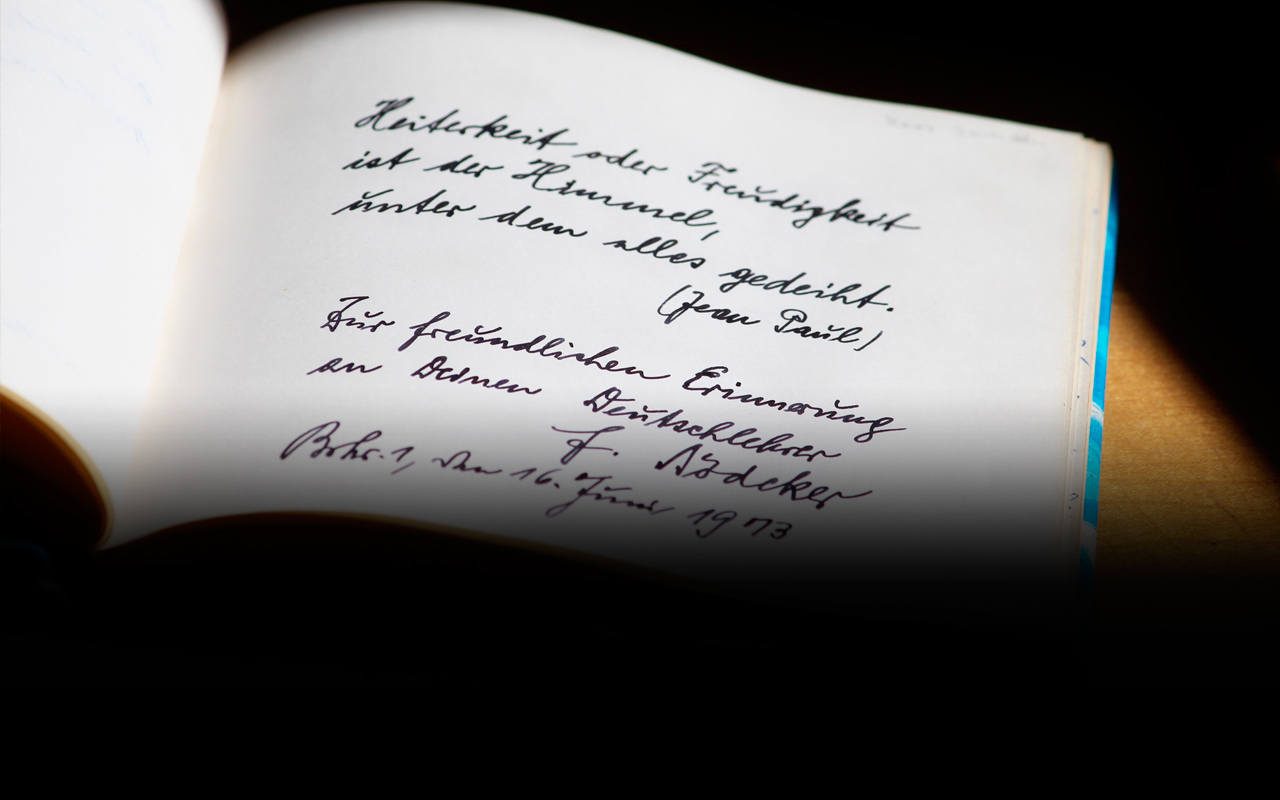 Heiterkeit oder Freudigkeit
ist der Himmel,
unter dem alles gedeiht.
(Jean Paul)
Zur freundlichen Erinnerung
an Deinen Deutschlehrer
F.
Bohr. 1, den 16. Juni 1973